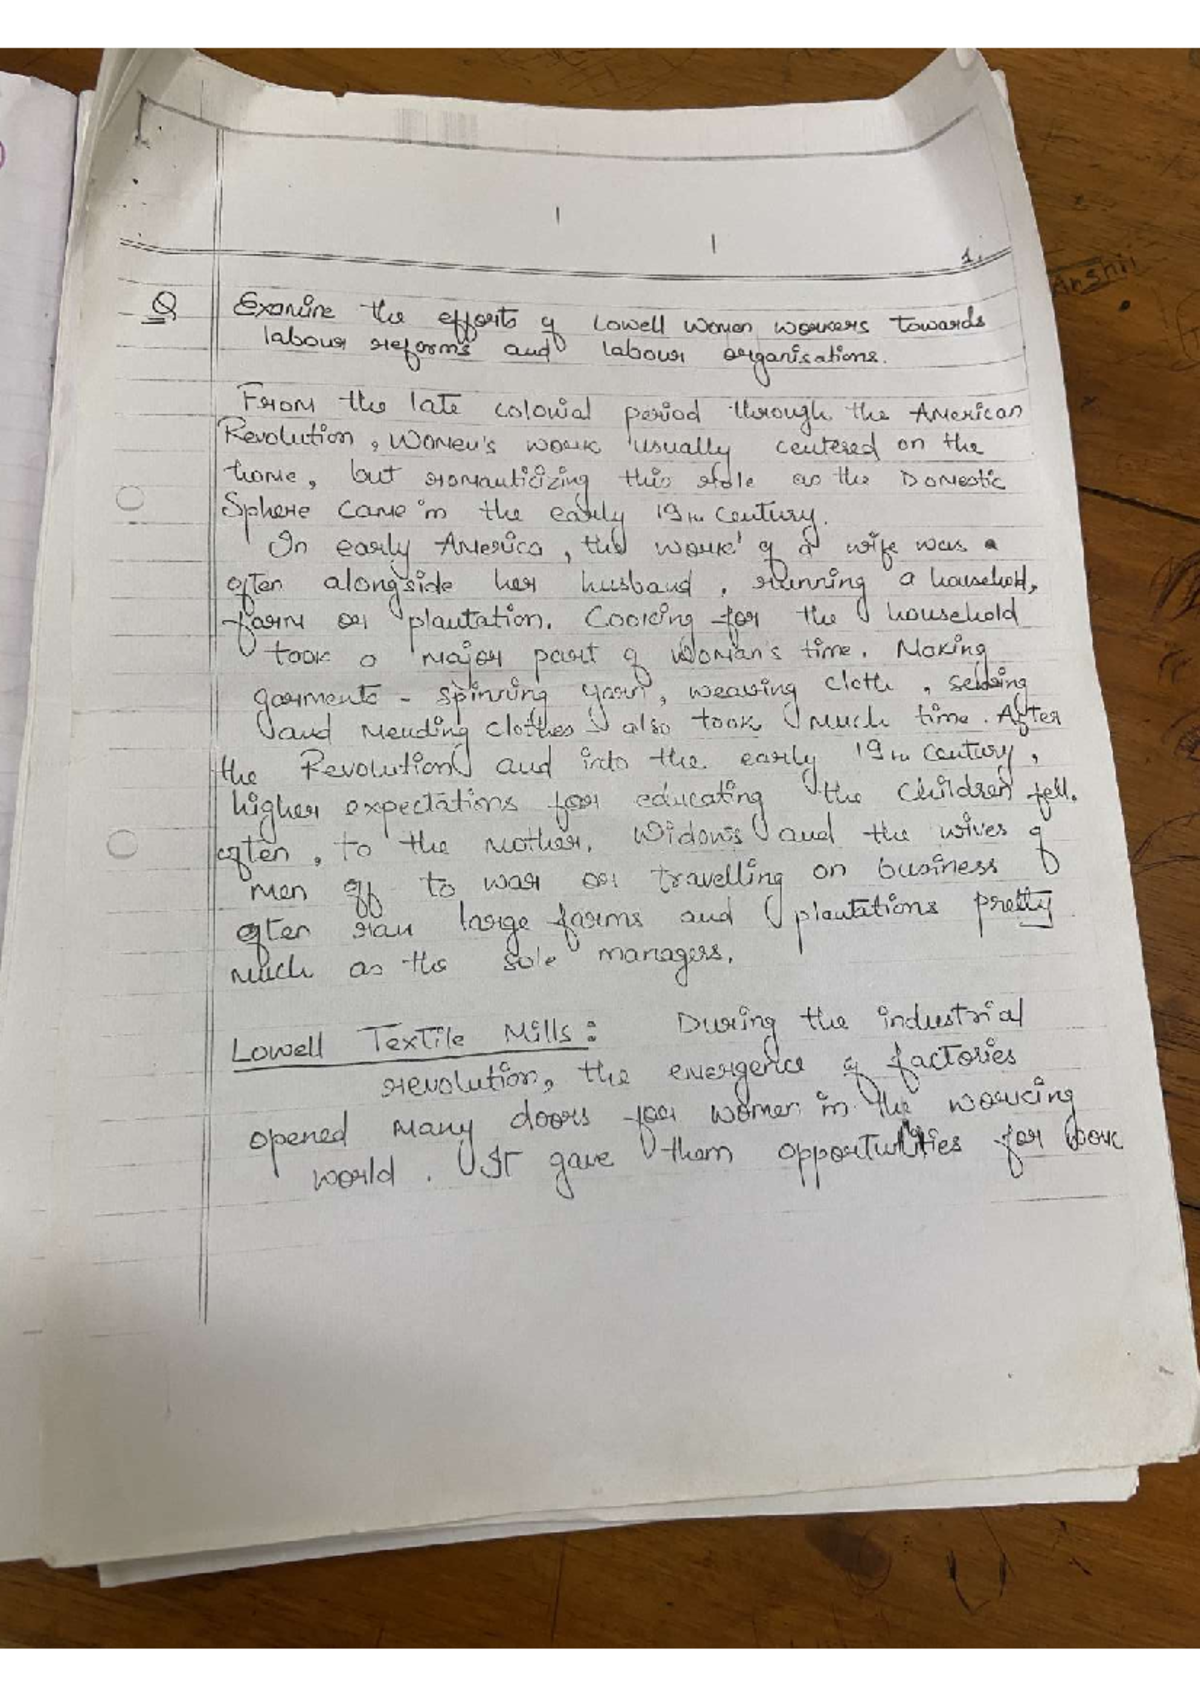 1.
Arshii
Q Examine the efforts of Lowell Women workers towards
labour reforms and labour organisations.
From the late colonial period through the American
Revolution, women's work usually centered on the
home, but romanticizing this role as the Domestic
Sphere came in the early 19th Century.
In early America, the work of a wife was
often alongside her husband, running a household,
farm or plantation. Cooking for the household
took a major part of woman's time. Making
garments - spinning yarn, weaving cloth, sewing
and mending clothes also took much time. After
the Revolution and into the early 19th century,
higher expectations for educating the children fell.
often, to the mother. Widows and the wives of
men off to war or travelling on business
often ran large farms and plantations pretty
much as the sole managers.
Lowell Textile Mills: During the industrial
revolution, the emergence of factories
opened many doors for women in the working
world. It gave them opportunities for work